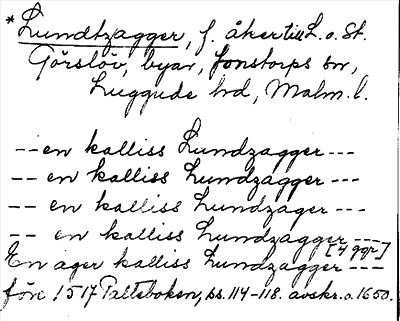 *Lundtzagger, f. åker till L. o. St.
Görslöv, byar, Jonstorps sn,
Luggude hd, Malm. l.
-- en kalliss Lundzagger ---
-- en kalliss Lundzagger ---
-- en kalliss Lundzager ---
-- en kalliss Lundzagger --- [4 ggr]
En ager kalliss Lundzagger ---
före 1517 Palteboken, ss. 114-118. avskr. o. 1650.